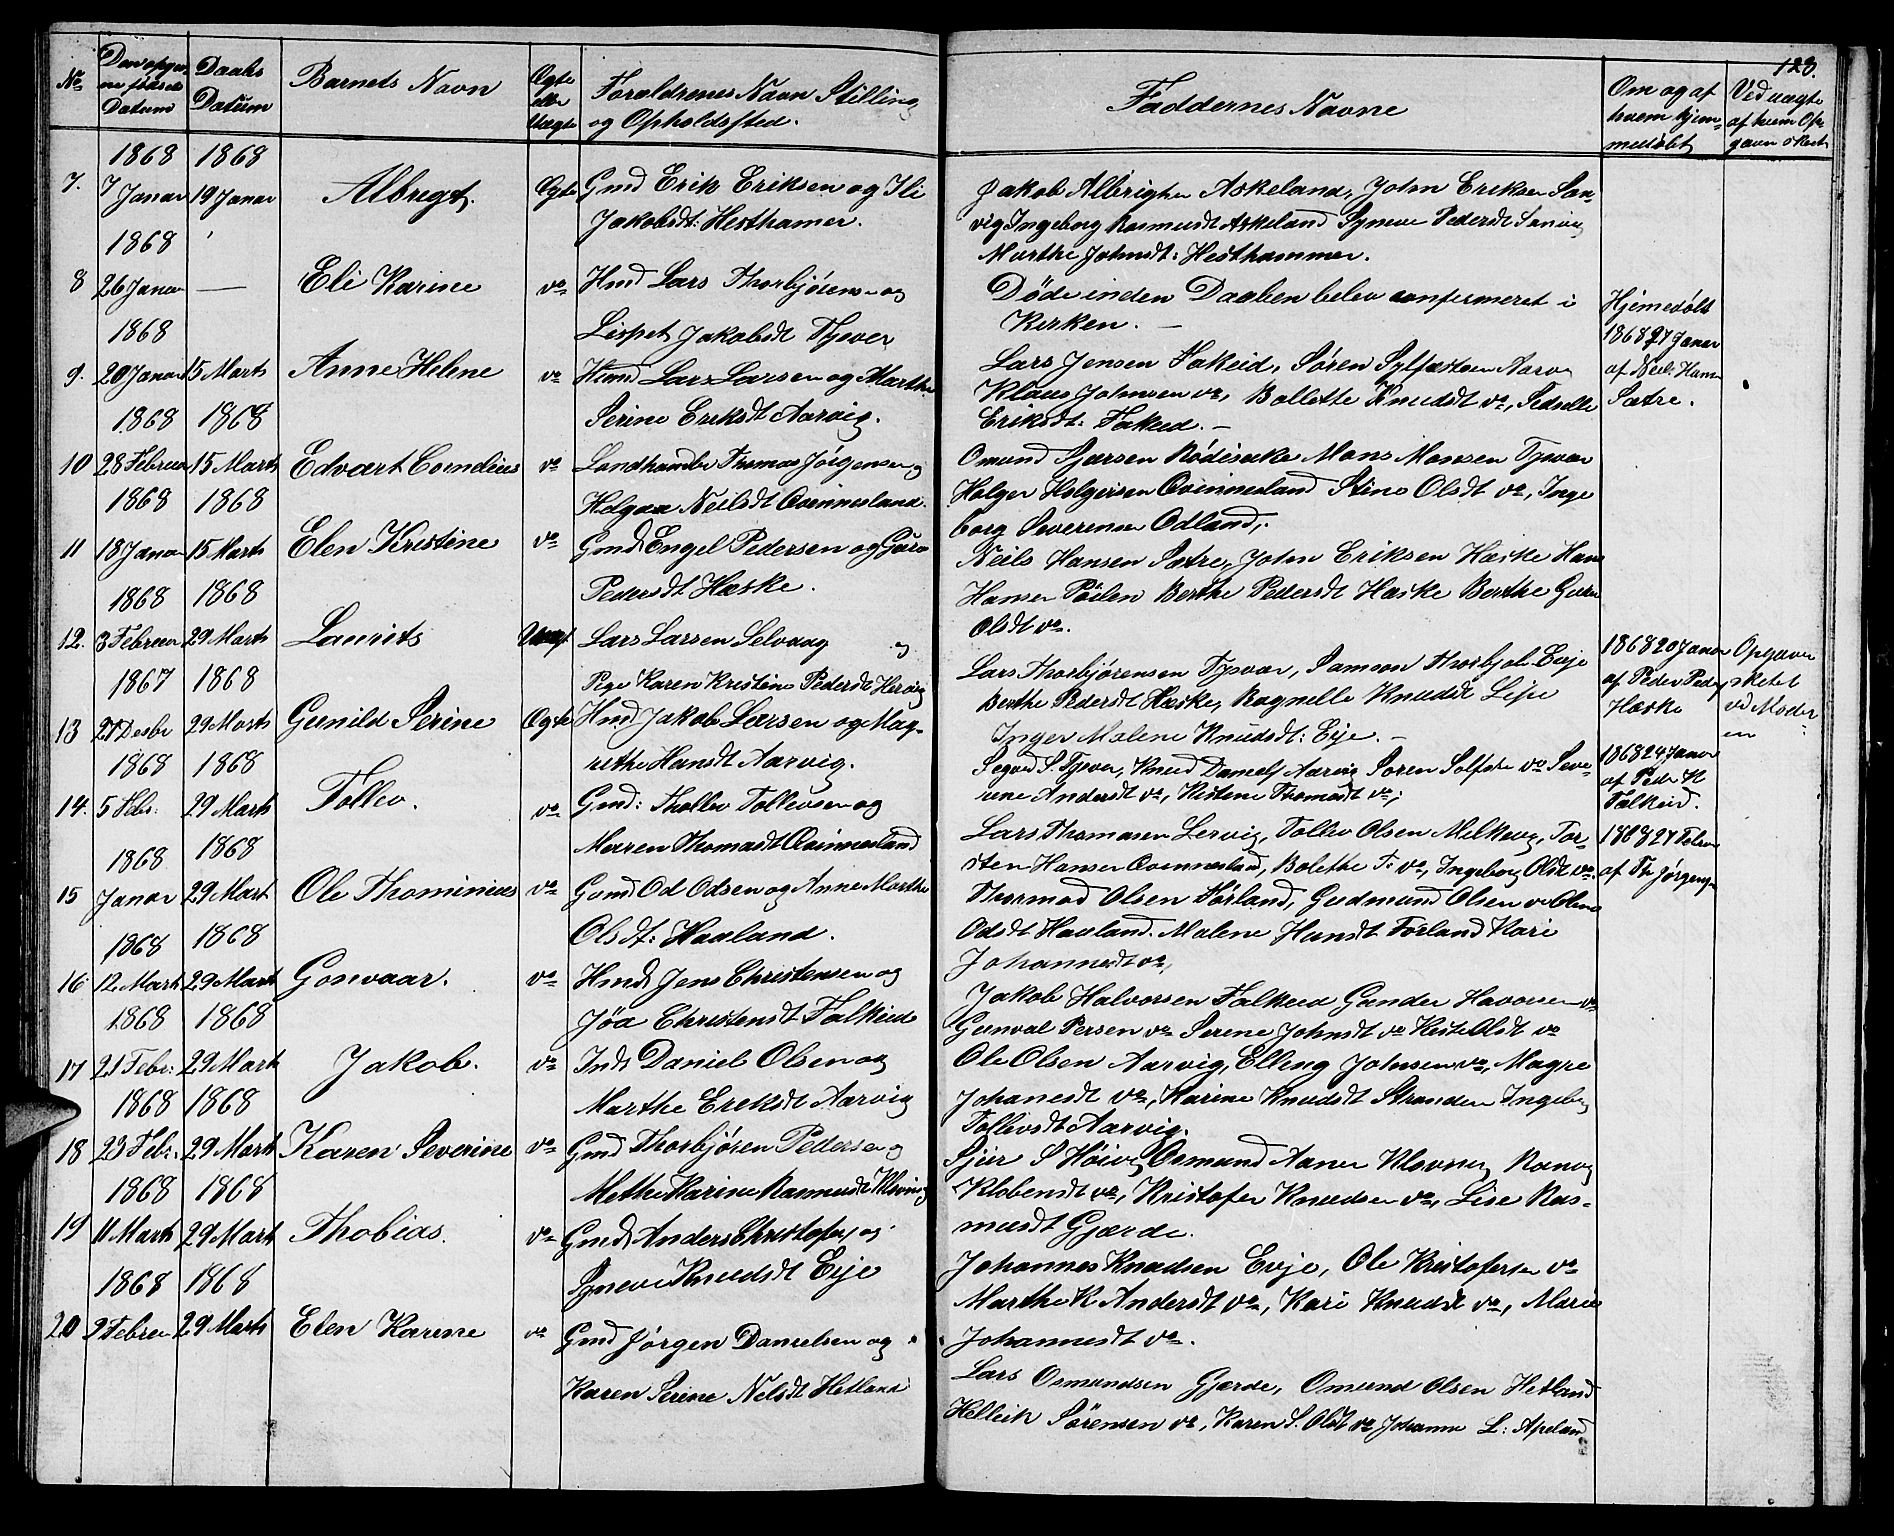 128.
No
Den opgivne fødsels Datum
Daabs Datum
Barnets Navn
Ægte eller Uægte
Forældrenes Navn Stilling og Opholdssted.
Faddernes Navne
Om og af hvem hjemmedøbt
Ved uægte af hvem Opgaven sket
7.
1868
7 Januar
1868
19 Januar
Albregt.
Ægte
Gmd Erik Eriksen og Ili
Jakobsdt: Hesthamer.
Jakob Albrigtsen Askeland, John Eriksen San-
vig Ingeborg Rasmusdt Askeland Syneve Pedersdt Sanvig
Marthe Johnsdt: Hesthammer.
8
1868
26 Januar
—
Eli Karine
do
Hmd Lars Thorbjørense og
Lispet Jakobsdt Tysver
Døde inden Daaben blev confirmeret i
Kirken. —
Hjemedøbt
1868 27 Januar
af Neils Hansen
Sætre.
9.
1868
20 Januar
15 Marts
Anne Helene
do
Hmd Lars Larsen og Marthe
Serine Eriksdt Aarvig.
Lars Jensen Falkeid, Søren Sylfæstsen Aarvig
Klaus Johnsen do, Bollette Knudsdt do, Sidselle
Eriksdt: Falkeid. —
10
1868
28 Februar
1868
15 Marts
Edvart Cornelius
do
Landhandler Thomas Jørgensen og
Helgaa Neilsdt Qvinnesland.
Omund Sjursen Rødisæke Mons Monsen Tysvær
Holger Holgersen Qvinnesland Stine Olsdt do, Inge
borg Severensen Odland,.
11
1868
18 Januar
1868
15 Marts
Elen Kristine
do
Gmd Engel Pedersen og Guro
Pedersdt Hæske.
Neils Hansen Sætre, John Eriksen Hæske Hans
Hansen Pøilen Berthe Pedersdt Hæske Berthe Guru
Olsdt do.
12.
1868
3 Februar
1868
29 Marts
Laurits
Uægt
Lars Larsen Selvaag og
Pige Karen Kristine Pedersdt Hervig
Lars Thorbjørensen Tysvær, Samson Thorbjøls Eije
Berthe Pedersdt Hæske, Ragnelle Knudsdt Lise
Inger Malene Knudsdt: Eije. —
1868 20 Januar
af Peder Peders
Hæske
Opgaven
sketet
ved Moder
en
13
1867
21 Desbr
1868
29 Marts
Gunild Serine
Ægte
Hmd Jakob Larsen og Mag-
rethe Hansdt Aarvig.
Segvd S. Tysver, Knud Daniels Aarvig Soren Solfest do Seve-
rine Andersdt do, Kistene Thomasdt do;
1868 24 Januar
af Peder K
Falkeid.
14.
1868
5 Febr.
1868
29 Marts
Tollev.
do
Gmd: Thollev Tollevsen og
Maren Thomasdt Qvinnesland
Lars Thomasen Lervig, Tollev Olsen Melkevig, Tor-
sten Hansen Qvinnesland, Bolethe T: do, Ingeborg Olsdt do.
1868 27 Febru
af Th Jørgensen
15
1868
Januar
1868
29 Marts
Ole Thominius
do
Gmd Od Odsen og Anne Marthe
Olsdt: Haaland.
Thormod Olsen Førland, Gudmund Olsen do Olene
Odsdt Haaland. Malene Hansdt Førland Kari
Johannesdt do,
16
1868
12 Marts
1868
29 Marts
Gonvaar.
do
Hmd Jens Christensen og
Jøa Christensdt Falkeid
Jakob Halvorsen Falkeid Gunder Havorsen do
Gunval Persen do Serene Johnsdt do Kiste Olsdt do
17
1868
21 Febr:
1868
29 Mart
Jakob.
do
Inds Daniel Olsen og
Marthe Eriksdt Aarvig
Ole Olsen Aarvig, Elling Johnsen do, Magre
Johanesdt do, Karine Knudsdt Stranden Ingeborg
Tollevsdt Aarvig.
18
1868
23 Febr.
1868
29 Mart
Karen Severine
do
Gmd Thorbjøren Pedersen og
Methe Karine Rasmusdt Kloving
Sjur S Høivig Osmund Aanen Klovning Ranvg
Klobensdt do, Kristofer Knudsen do, Lise Ras-
musdt Gjærde.
19
1868
11 Marts
1868
29 Mart
Thobias.
do
Gmd Anders Christofers og
Syneve Knudsdt Eije
Johannes Knudsen Evje, Ole Kristofersen do
Marthe K Andersdt do, Kari Knudsdt do, Marie
Johannesdt do.
20
1868
2 Februar
1868
29 Marts
Elen Karine
do
Gmd Jørgen Danielsen og
Karen Serine Nelsdt Hetland
Lars Osmundsen Gjærde, Omund Olsen Hetland
Helleik Sørensen do, Karen S. Olsdt do Johanne L: Apeland